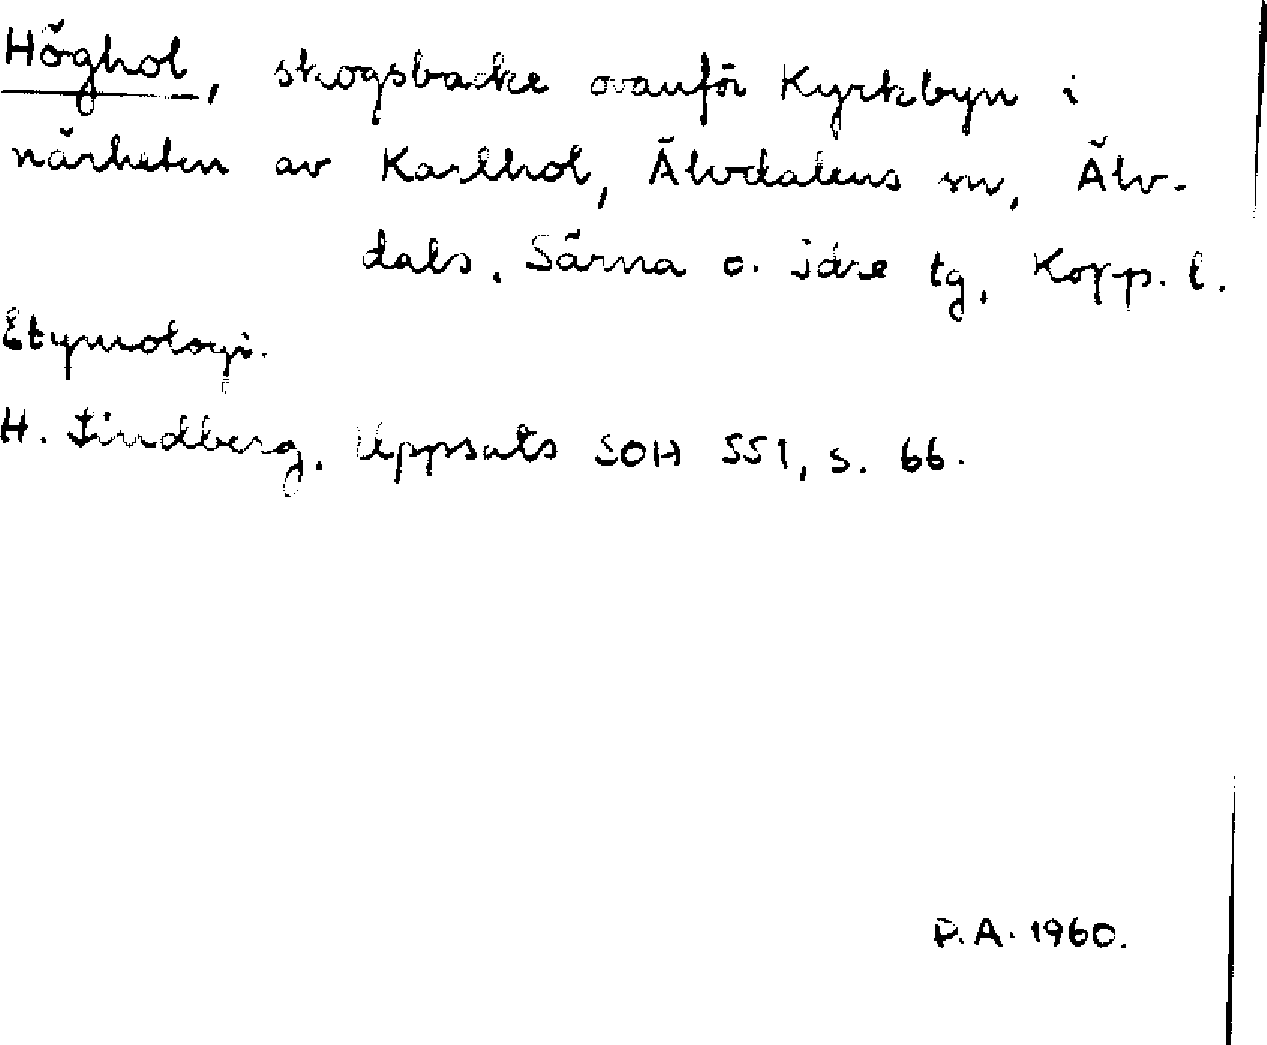 Höghol, skogsbacke ovanför Kyrkbyn i
närheten av Karlhol, Älvdalens sn, Älv-
dals, Särna o. Idre tg, Kopp. l.
Etymologi.
H. Lindberg, Uppsats SOH 551, s. 66.
P.A. 1960.